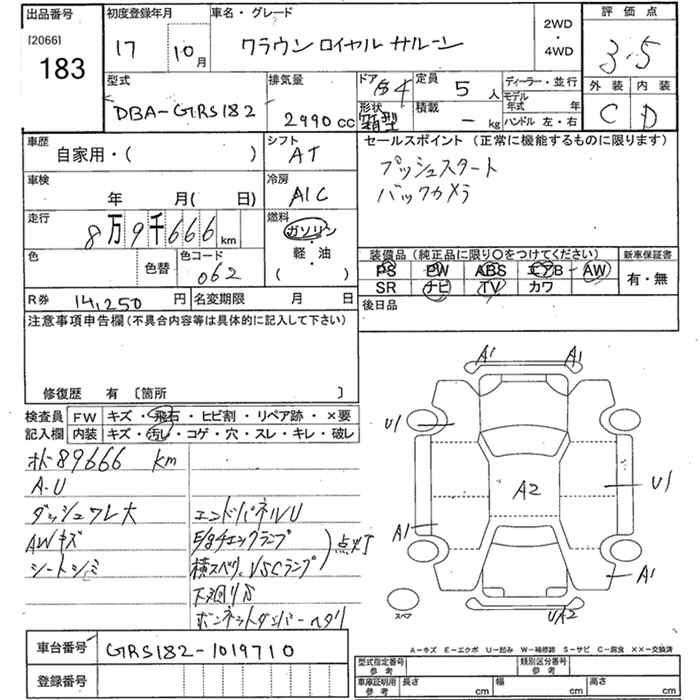 出品番号 [2066] 183
初度登録年月 17 10月
車名・グレード クラウン ロイヤル サルーン
2WD ・ 4WD
評価点 3.5
外装 内装
C D
型式 DBA-GRS182
排気量 2990 cc
ドア 4
形状 箱型
定員 5 人
積載 - kg
ディーラー・並行
モデル年式 年
ハンドル 左・右
車歴 自家用・( )
シフト AT
セールスポイント (正常に機能するものに限ります)
プッシュスタート
バックカメラ
車検 年 月( 日)
冷房 A/C
走行 8万9千666km
燃料 ガソリン ・ 軽・油 ( )
色 色替 色コード 062
装備品 (純正品に限り○をつけてください) 新車保証書
PS PW ABS エアB AW 有・無
SR ナビ TV カワ
R券 14,250 円 名変期限 月 日
後日品
注意事項申告欄 (不具合内容等は具体的に記入して下さい)
修復歴 有 〔箇所 〕
検査員 FW キズ・飛石・ヒビ割・リペア跡・×要
記入欄 内装 キズ・汚レ・コゲ・穴・スレ・キレ・破レ
オド89666 km
A-U
ダッシュワレ大 エンドパネルU
AWキズ E/gチェックランプ
シートシミ 横スベリ、VSCランプ 点灯
下廻りサ
ボンネットダンパーヘタリ
A1 A1
U1
A2 U1
A1
A1
UA2
スペア
車台番号 GRS182-1019710
登録番号
A-キズ E-エクボ U-凹み W-補修跡 S-サビ C-腐食 ××-交換済
型式指定番号 参考 類別区分番号 参考
車庫証明用 参考 長さ cm 幅 cm 高さ cm